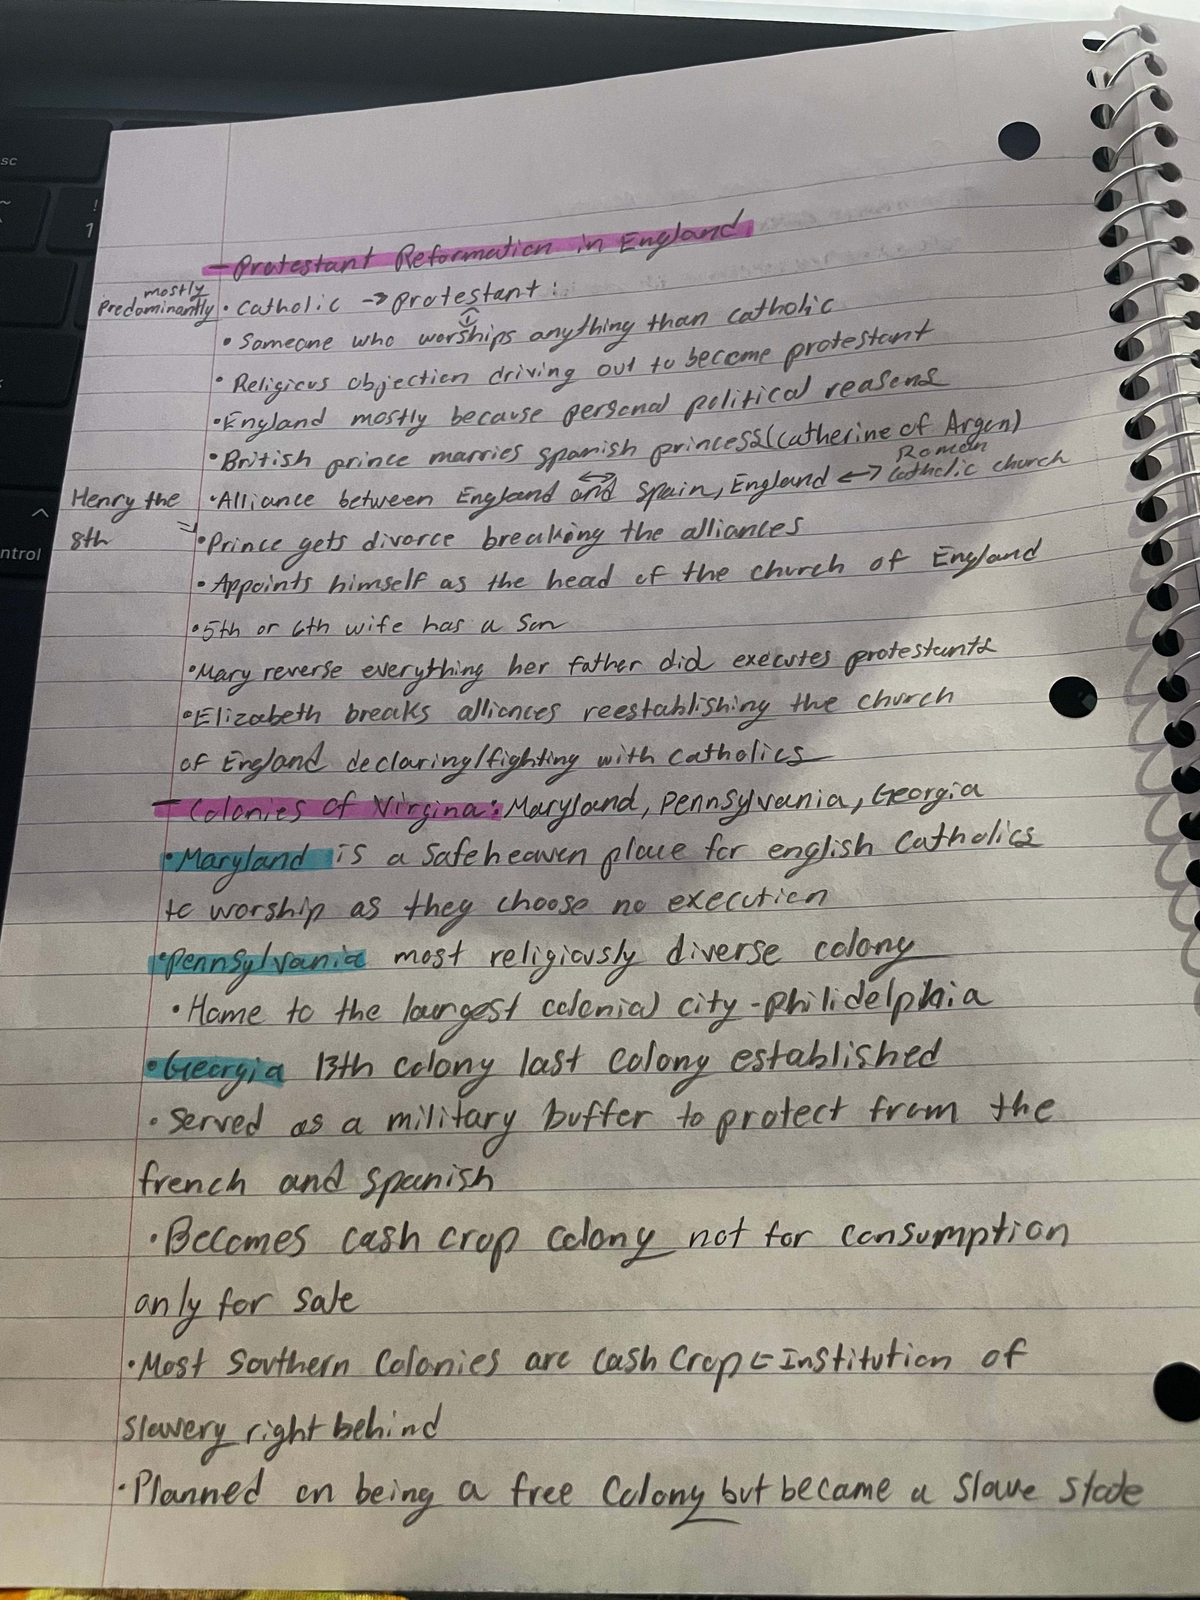 - Protestant Reformation in England.
mostly
Predominantly • Catholic → protestant :
• Someone who worships anything than catholic
• Religious objection driving out to become protestant
• England mostly because personal political reasons
• British prince marries spanish princess (Catherine of Argon)
• Alliance between England and Spain, England ↔ Roman Catholic church
Henry the 8th → • Prince gets divorce breaking the alliances
• Appoints himself as the head of the church of England
• 5th or 6th wife has a son
• Mary reverse everything her father did executes protestants
• Elizabeth breaks alliances reestablishing the church
of England declaring/fighting with catholics
- Colonies of Virgina: Maryland, Pennsylvania, Georgia
• Maryland is a safeheaven place for english Catholics
to worship as they choose no execution
• Pennsylvania most religiously diverse colony
• Home to the largest colonial city - philidelphia
• Georgia 13th colony last colony established
• Served as a military buffer to protect from the
french and spanish
• Becomes cash crop colony not for consumption
only for sale
• Most Southern Colonies are cash crop = Institution of
slavery right behind
• Planned on being a free Colony but became a slave state